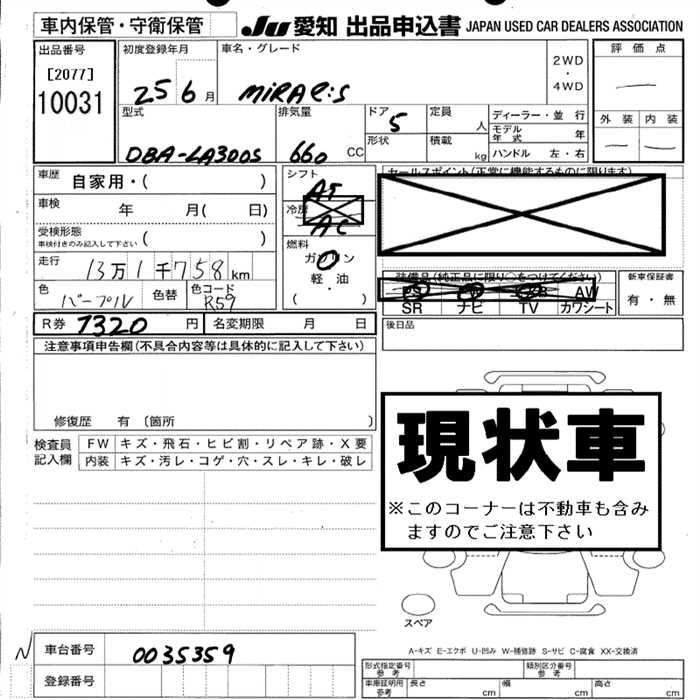 車内保管・守衛保管
JU 愛知 出品申込書 JAPAN USED CAR DEALERS ASSOCIATION
出品番号
[2077]
10031
初度登録年月
25 6月
車名・グレード
MiRA e:S
2WD
・
4WD
評価点
—
外装 内装
— —
型式
DBA-LA300S
排気量
660 CC
ドア
5
形状
定員
人
積載
kg
ディーラー・並行
モデル年式 年
ハンドル 左・右
車歴 自家用・( )
車検 年 月( 日)
受検形態
車検付きのみ記入して下さい ( )
走行 13万1千758km
色 パープル 色替 色コード R59
シフト
AT
冷房
AC
燃料
ガソリン
軽・油
( )
セールスポイント(正常に機能するものに限ります)
装備品(純正品に限り○をつけてください)
AW
SR ナビ TV カワシート
新車保証書
有・無
後日品
R券 7320円 名変期限 月 日
注意事項申告欄(不具合内容等は具体的に記入して下さい)
修復歴 有 〔箇所 〕
検査員記入欄
FW キズ・飛石・ヒビ割・リペア跡・X要
内装 キズ・汚レ・コゲ・穴・スレ・キレ・破レ
現状車
※このコーナーは不動車も含み
ますのでご注意下さい
スペア
A-キズ E-エクボ U-凹み W-補修跡 S-サビ C-腐食 XX-交換済
N 車台番号 0035359
登録番号
形式指定番号 参考
類別区分番号 参考
車庫証明用 参考 長さ cm 幅 cm 高さ cm